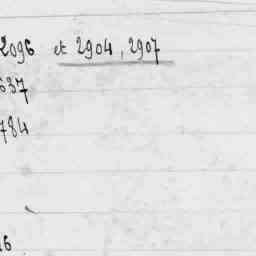 2096 et 2904, 2907
637
784
16